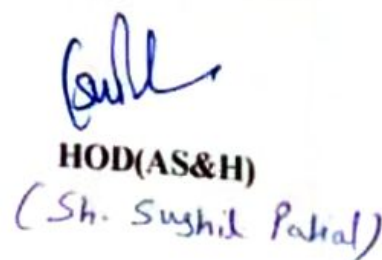 HOD(AS&H)
(Sh. Sushil Patial)